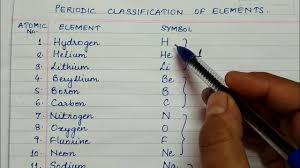 PERIODIC CLASSIFICATION OF ELEMENTS.
ATOMIC NO. ELEMENT SYMBOL
1 Hydrogen H
2 Helium He 1
3 Lithium Li
4 Beryllium Be
5 Boron B
6 Carbon C
7 Nitrogen N
8 Oxygen O
9 Fluorine F
10 Neon Ne
11 Sodium Na